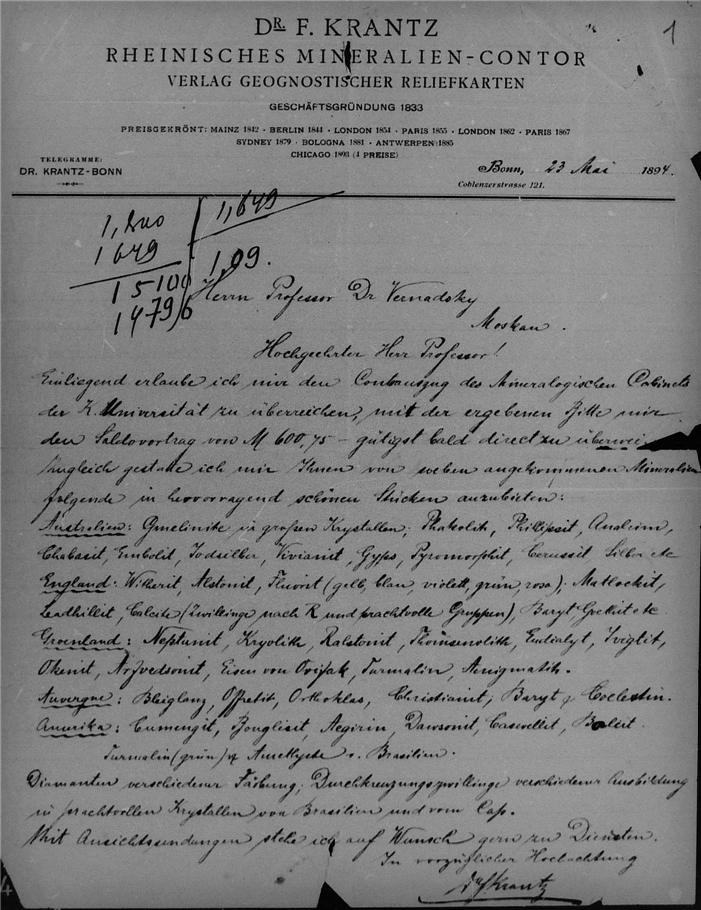 1
DR. F. KRANTZ
RHEINISCHES MINERALIEN-CONTOR
VERLAG GEOGNOSTISCHER RELIEFKARTEN
GESCHÄFTSGRÜNDUNG 1833
PREISGEKRÖNT: MAINZ 1842 · BERLIN 1844 · LONDON 1854 · PARIS 1855 · LONDON 1862 · PARIS 1867
SYDNEY 1879 · BOLOGNA 1881 · ANTWERPEN 1885
CHICAGO 1893 (4 PREISE)
TELEGRAMME:
DR. KRANTZ-BONN
Bonn, 23 Mai 1894.
Coblenzerstrasse 121.
1,649
1649
1,09.
15100
14796
Herrn Professor Dr Vernadsky
Moskau.
Hochgeehrter Herr Professor!
Einliegend erlaube ich mir den Contoauszug des Mineralogischen Cabinets
der K. Universität zu überreichen, mit der ergebenen Bitte mir
den Saldovortrag von M 600,75 – gütigst bald direct zu überwei
Zugleich gestatte ich mir Ihnen von soeben angekommenen Mineralien
folgende in hervorragend schönen Stücken anzubieten:
Australien: Gmelinite in großen Krystallen; Phakolith, Phillipsit, Analcim,
Chabasit, Embolit, Jodsilber, Vivianit, Gyps, Pyromorphit, Cerussit Silber etc
England: Witherit, Alstonit, Fluorit (gelb, blau, violett, grün, rosa); Matlockit,
Leadhillit, Calcite (Zwillinge nach R und prachtvolle Gruppen), Baryt etc.
Groenland: Neptunit, Kryolith, Ralstonit, Thomsenolith, Eudialyt, Ivigtit,
Okenit, Arfvedsonit, Eisen von Ovifak, Turmalin, Ainigmatit.
Auvergne: Bleiglanz, Offretit, Orthoklas, Christianit, Baryt, Coelestin.
Amerika: Cumengit, Boleit, Aegirin, Dawsonit, Caswellit,
Turmalin (grün) Amethyste v. Brasilien.
Diamanten verschiedener Färbung; Durchkreuzungszwillinge verschiedener Ausbildung
in prachtvollen Krystallen von Brasilien und vom Cap.
Mit Ansichtssendungen stehe ich auf Wunsch gern zu Diensten.
In vorzüglicher Hochachtung
Dr F Krantz